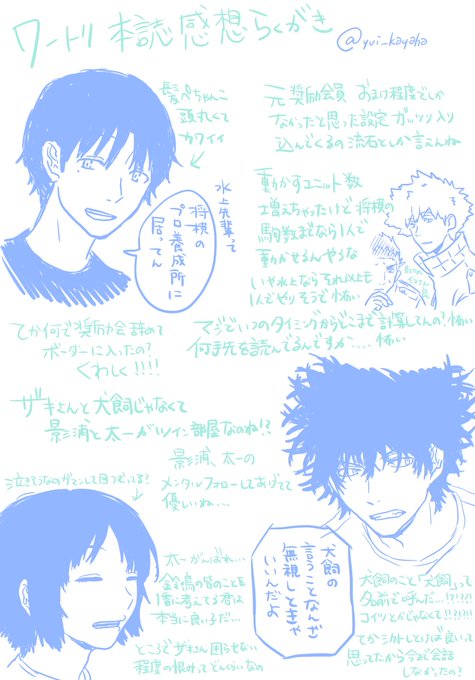 ワートリ 本誌感想らくがき
@yui_kayaha
髪ぺちゃんこ
頭丸くて
カワイイ
元奨励会員 おまけ程度でしか
なかったと思った設定 ガッツリ入り
込んでくるの流石としか言えんね
水上先輩って
将棋の
プロ養成所に
居ってん
動かすユニット数
増えちゃったけど将棋の
駒数までなら1人で
動かせるんやろな
いや水上ならそれ以上も
1人でやりそうで怖い
てか何で奨励会辞めて
ボーダーに入ったの?
くわしく!!!!
マジでいつのタイミングからどこまで計算してんの?怖い
何手先を読んでるんですか....怖い
ザキさんと犬飼じゃなくて
影浦と太一がツイン部屋なのね!?
影浦、太一の
メンタルフォローしてあげてて
優しいね...
泣きそうなのガマンして目つむっている?
太一がんばれ...
鈴鳴の皆のことを
1番に考えてる君は
本当に良い子だ...
ところでザキさん困らせない
程度の恨みってどんくらいなの
犬飼の
言うことなんざ
無視しときゃ
いいんだよ
犬飼のこと「犬飼」って
名前で呼んだ...!?!?!?
コイツとかじゃなくて!?!?!
てかシカトしとけば良いって
思ってたから今まで会話
しなかったの?